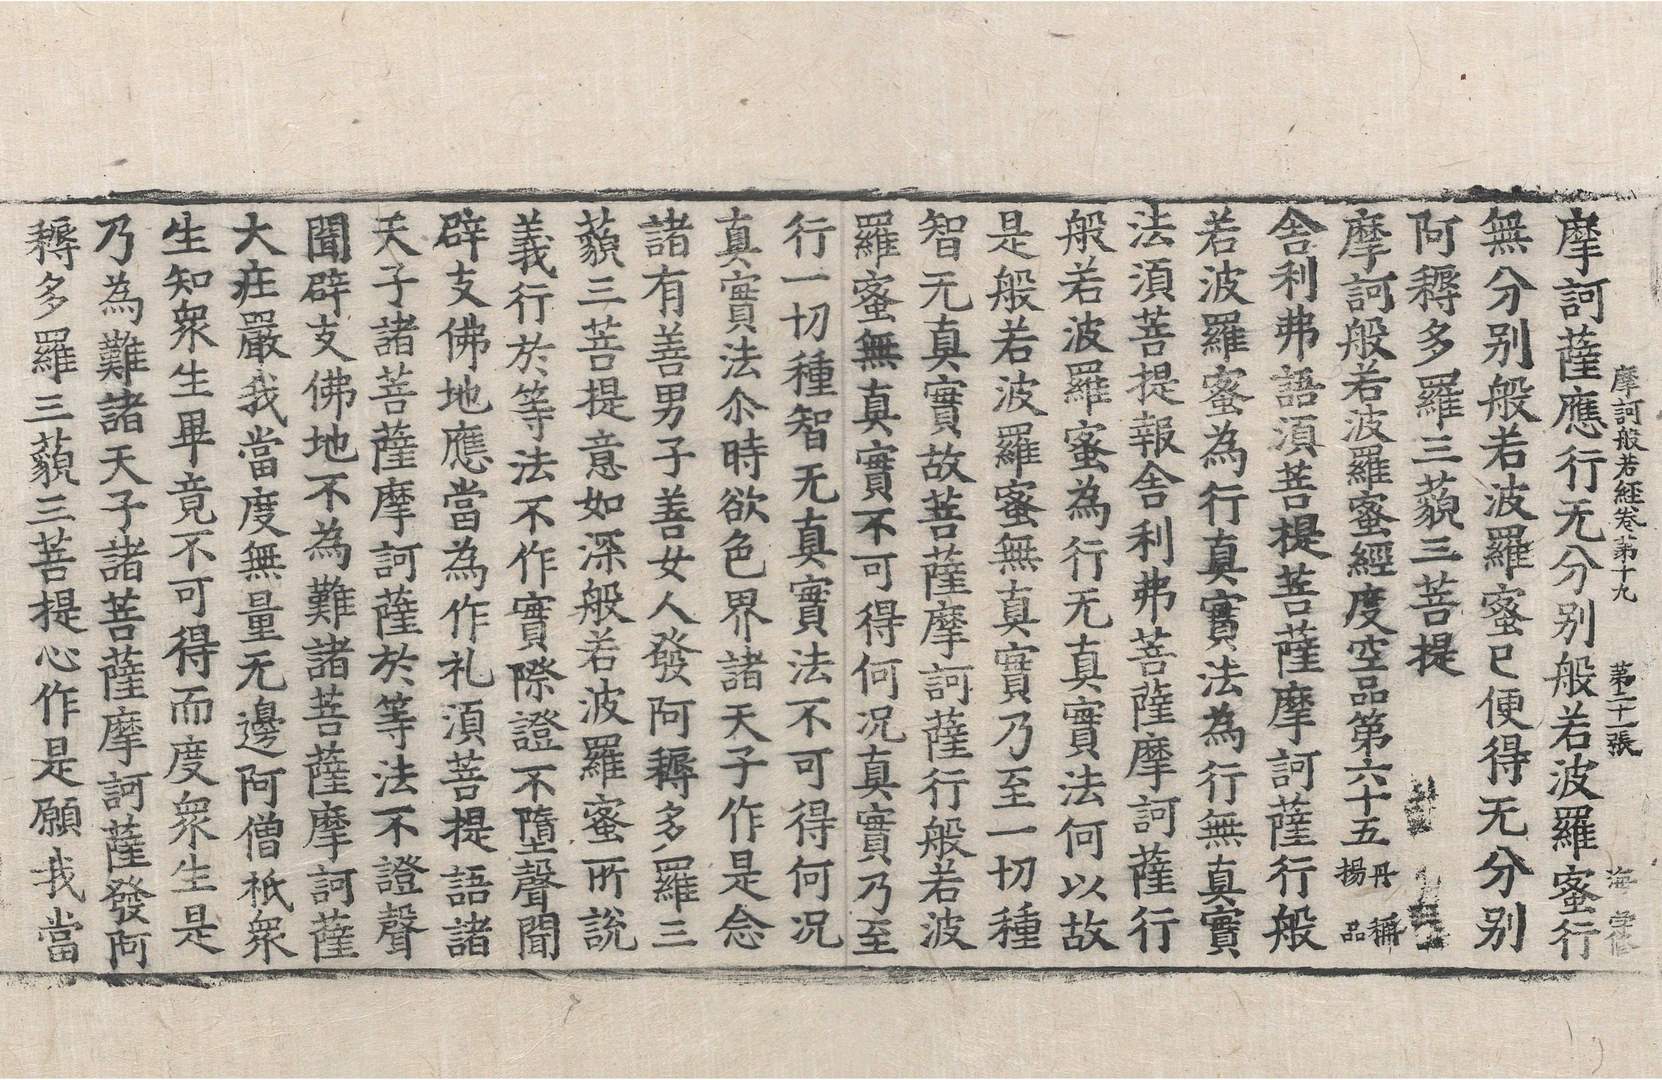 摩訶般若經卷第十九　第二十一張　海　学修
摩訶薩應行无分别般若波羅蜜行
無分别般若波羅蜜已便得无分别
阿耨多羅三藐三菩提
摩訶般若波羅蜜經度空品第六十五 丹稱揚品
舍利弗語湏菩提菩薩摩訶薩行般
若波羅蜜為行真實法為行無真實
法湏菩提報舍利弗菩薩摩訶薩行
般若波羅蜜為行无真實法何以故
是般若波羅蜜無真實乃至一切種
智无真實故菩薩摩訶薩行般若波
羅蜜無真實不可得何况真實乃至
行一切種智无真實法不可得何况
真實法尒時欲色界諸天子作是念
諸有善男子善女人發阿耨多羅三
藐三菩提意如深般若波羅蜜所說
義行於等法不作實際證不墮聲聞
辟支佛地應當為作礼湏菩提語諸
天子諸菩薩摩訶薩於等法不證聲
聞辟支佛地不為難諸菩薩摩訶薩
大莊嚴我當度無量无邊阿僧祇衆
生知衆生畢竟不可得而度衆生是
乃為難諸天子諸菩薩摩訶薩發阿
耨多羅三藐三菩提心作是願我當